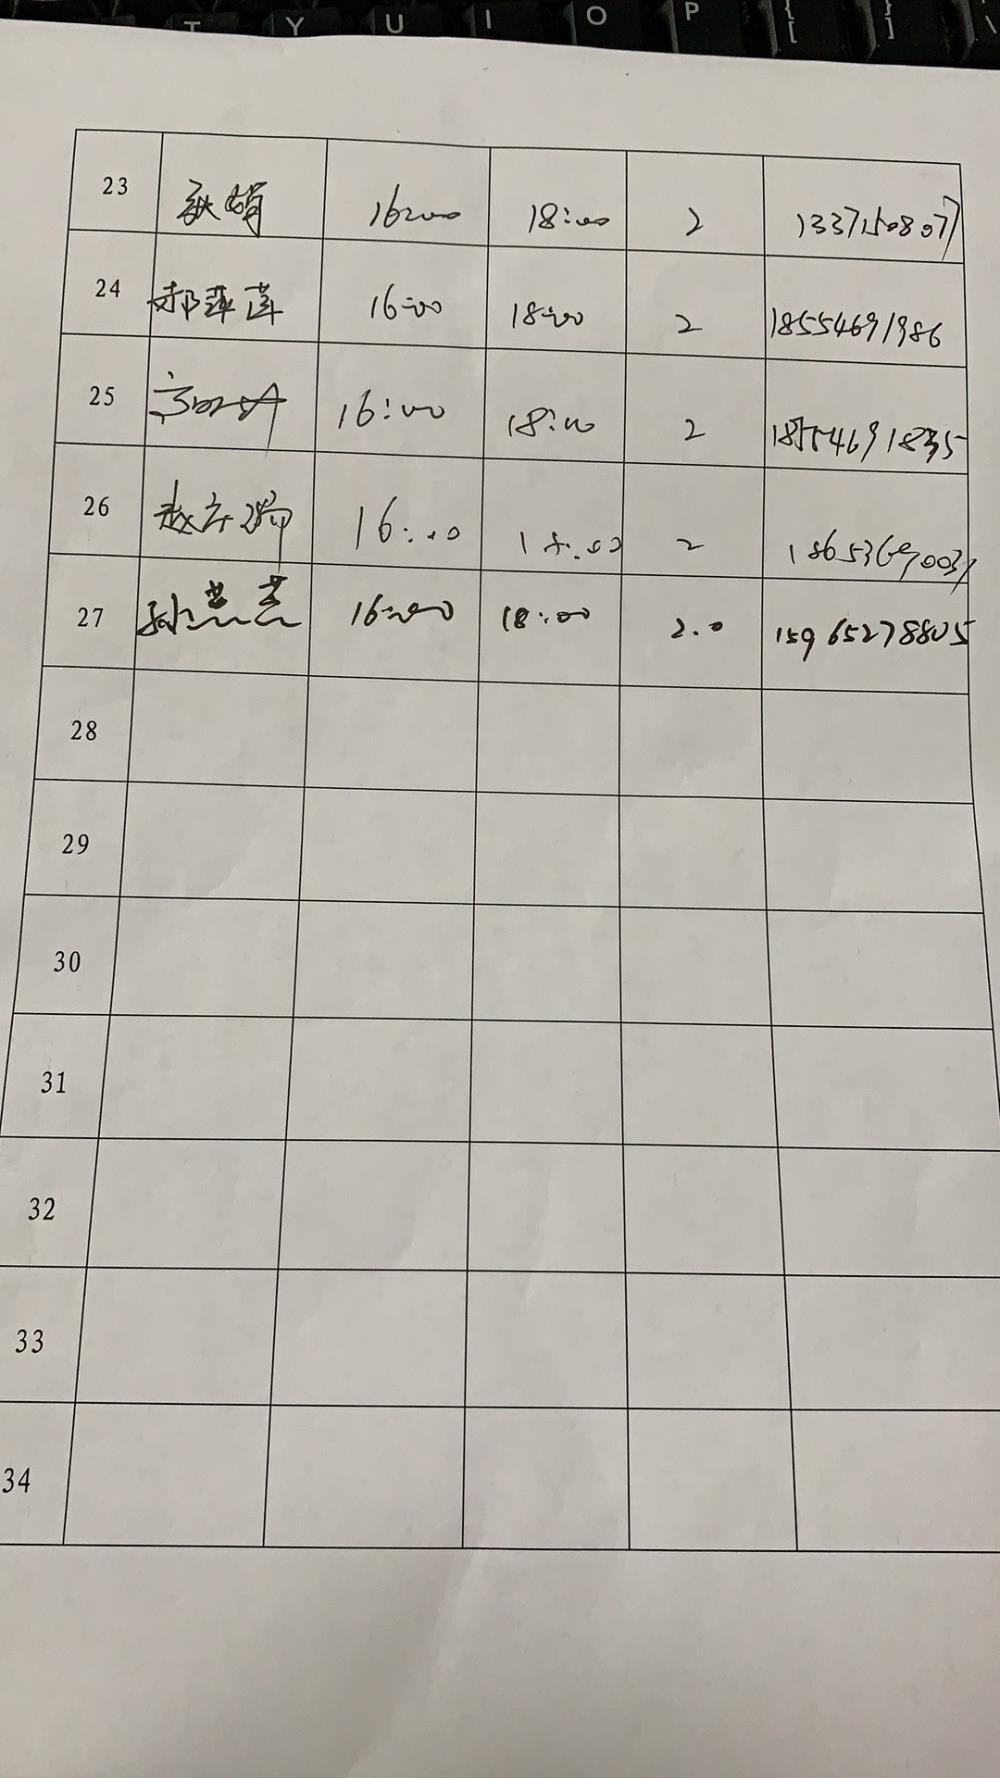 T Y U I O P { [ } ] \
23 耿娟 16:00 18:00 2 13371508077
24 郝萍莲 16:00 18:00 2 18554691986
25 16:00 18:00 2
26 16:00 18:00 2
27 孙芸芸 16:00 18:00 2.0 15965278805
28
29
30
31
32
33
34